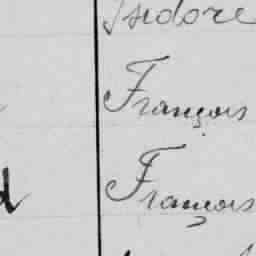 Isidore
François
François